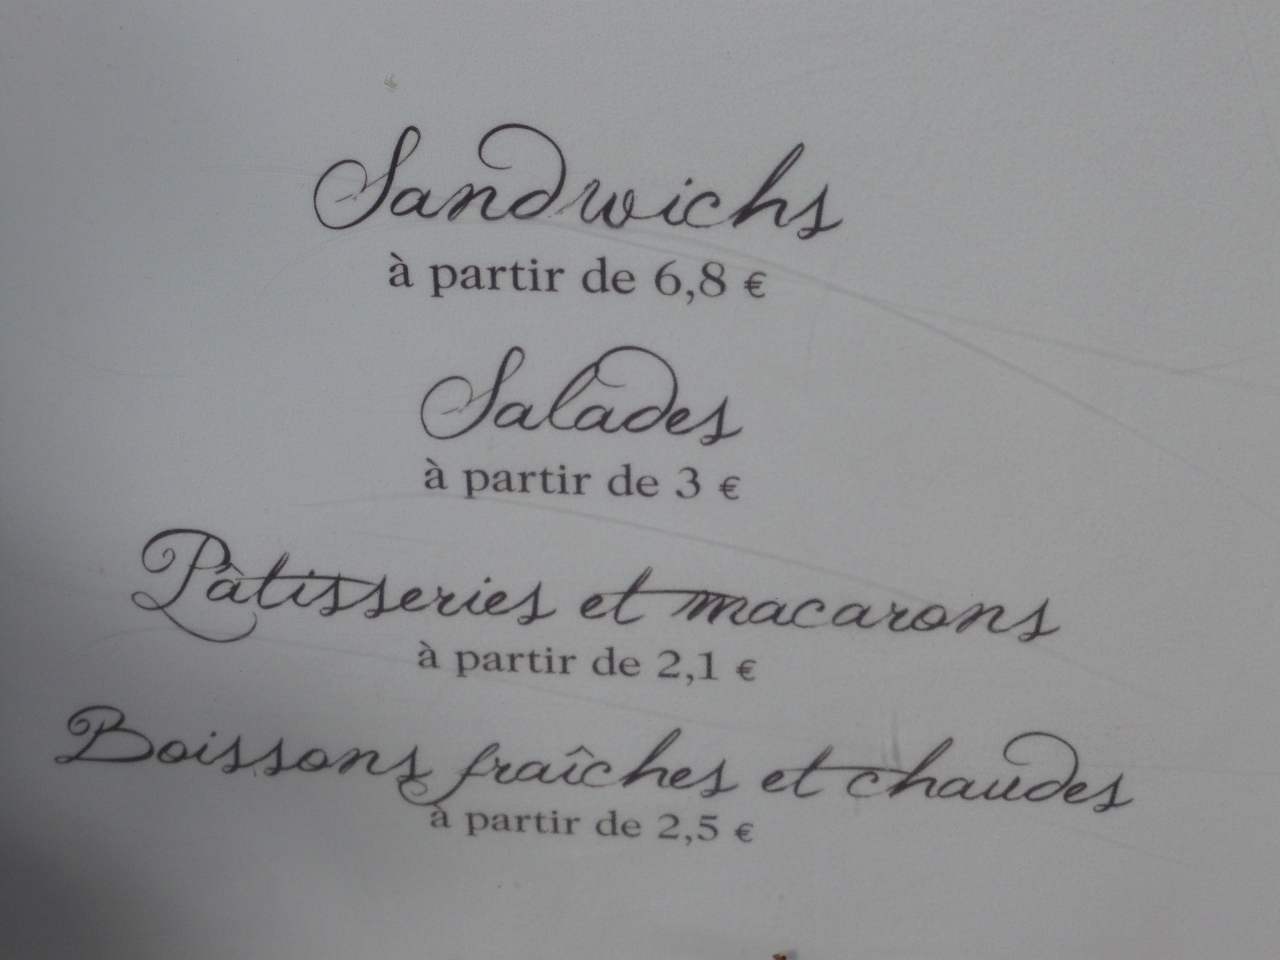 Sandwichs
à partir de 6,8 €
Salades
à partir de 3 €
Pàtisseries et macarons
à partir de 2,1 €
Boissons fraîches et chaudes
à partir de 2,5 €